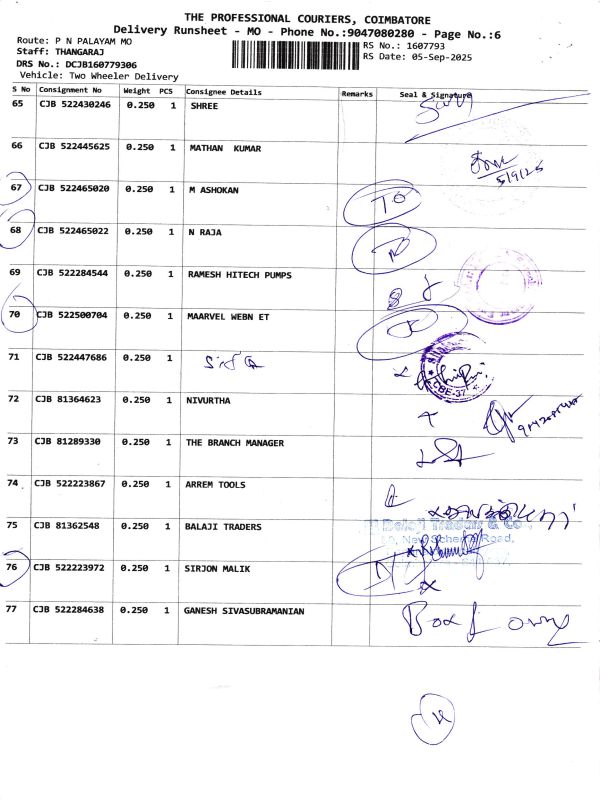 THE PROFESSIONAL COURIERS, COIMBATORE
Delivery Runsheet - MO - Phone No.:9047080280 - Page No.:6
Route: P N PALAYAM MO
Staff: THANGARAJ
DRS No.: DCJB160779306
Vehicle: Two Wheeler Delivery
RS No.: 1607793
RS Date: 05-Sep-2025
S No Consignment No Weight PCS Consignee Details Remarks Seal & Signature
65 CJB 522430246 0.250 1 SHREE
66 CJB 522445625 0.250 1 MATHAN KUMAR
5/9/25
67 CJB 522465020 0.250 1 M ASHOKAN
68 CJB 522465022 0.250 1 N RAJA
69 CJB 522284544 0.250 1 RAMESH HITECH PUMPS
70 CJB 522500704 0.250 1 MAARVEL WEBN ET
71 CJB 522447686 0.250 1
CBE-37
72 CJB 81364623 0.250 1 NIVURTHA
73 CJB 81289330 0.250 1 THE BRANCH MANAGER
74 CJB 522223867 0.250 1 ARREM TOOLS
75 CJB 81362548 0.250 1 BALAJI TRADERS
Balaji Traders & Co
Road,
76 CJB 522223972 0.250 1 SIRJON MALIK
77 CJB 522284638 0.250 1 GANESH SIVASUBRAMANIAN
Box